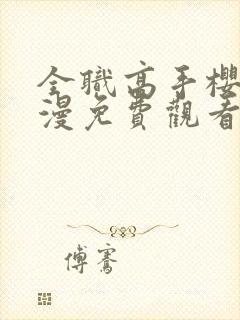 全職高手櫻
漫免費觀看
傅騫